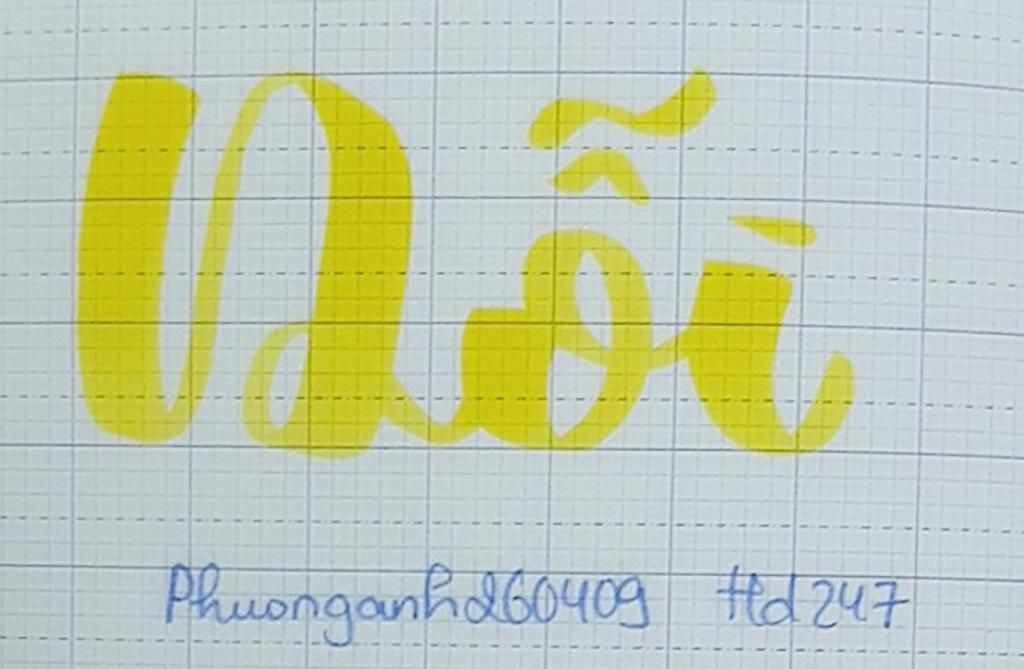 Dỗi
Phuonganh260409 Hd247